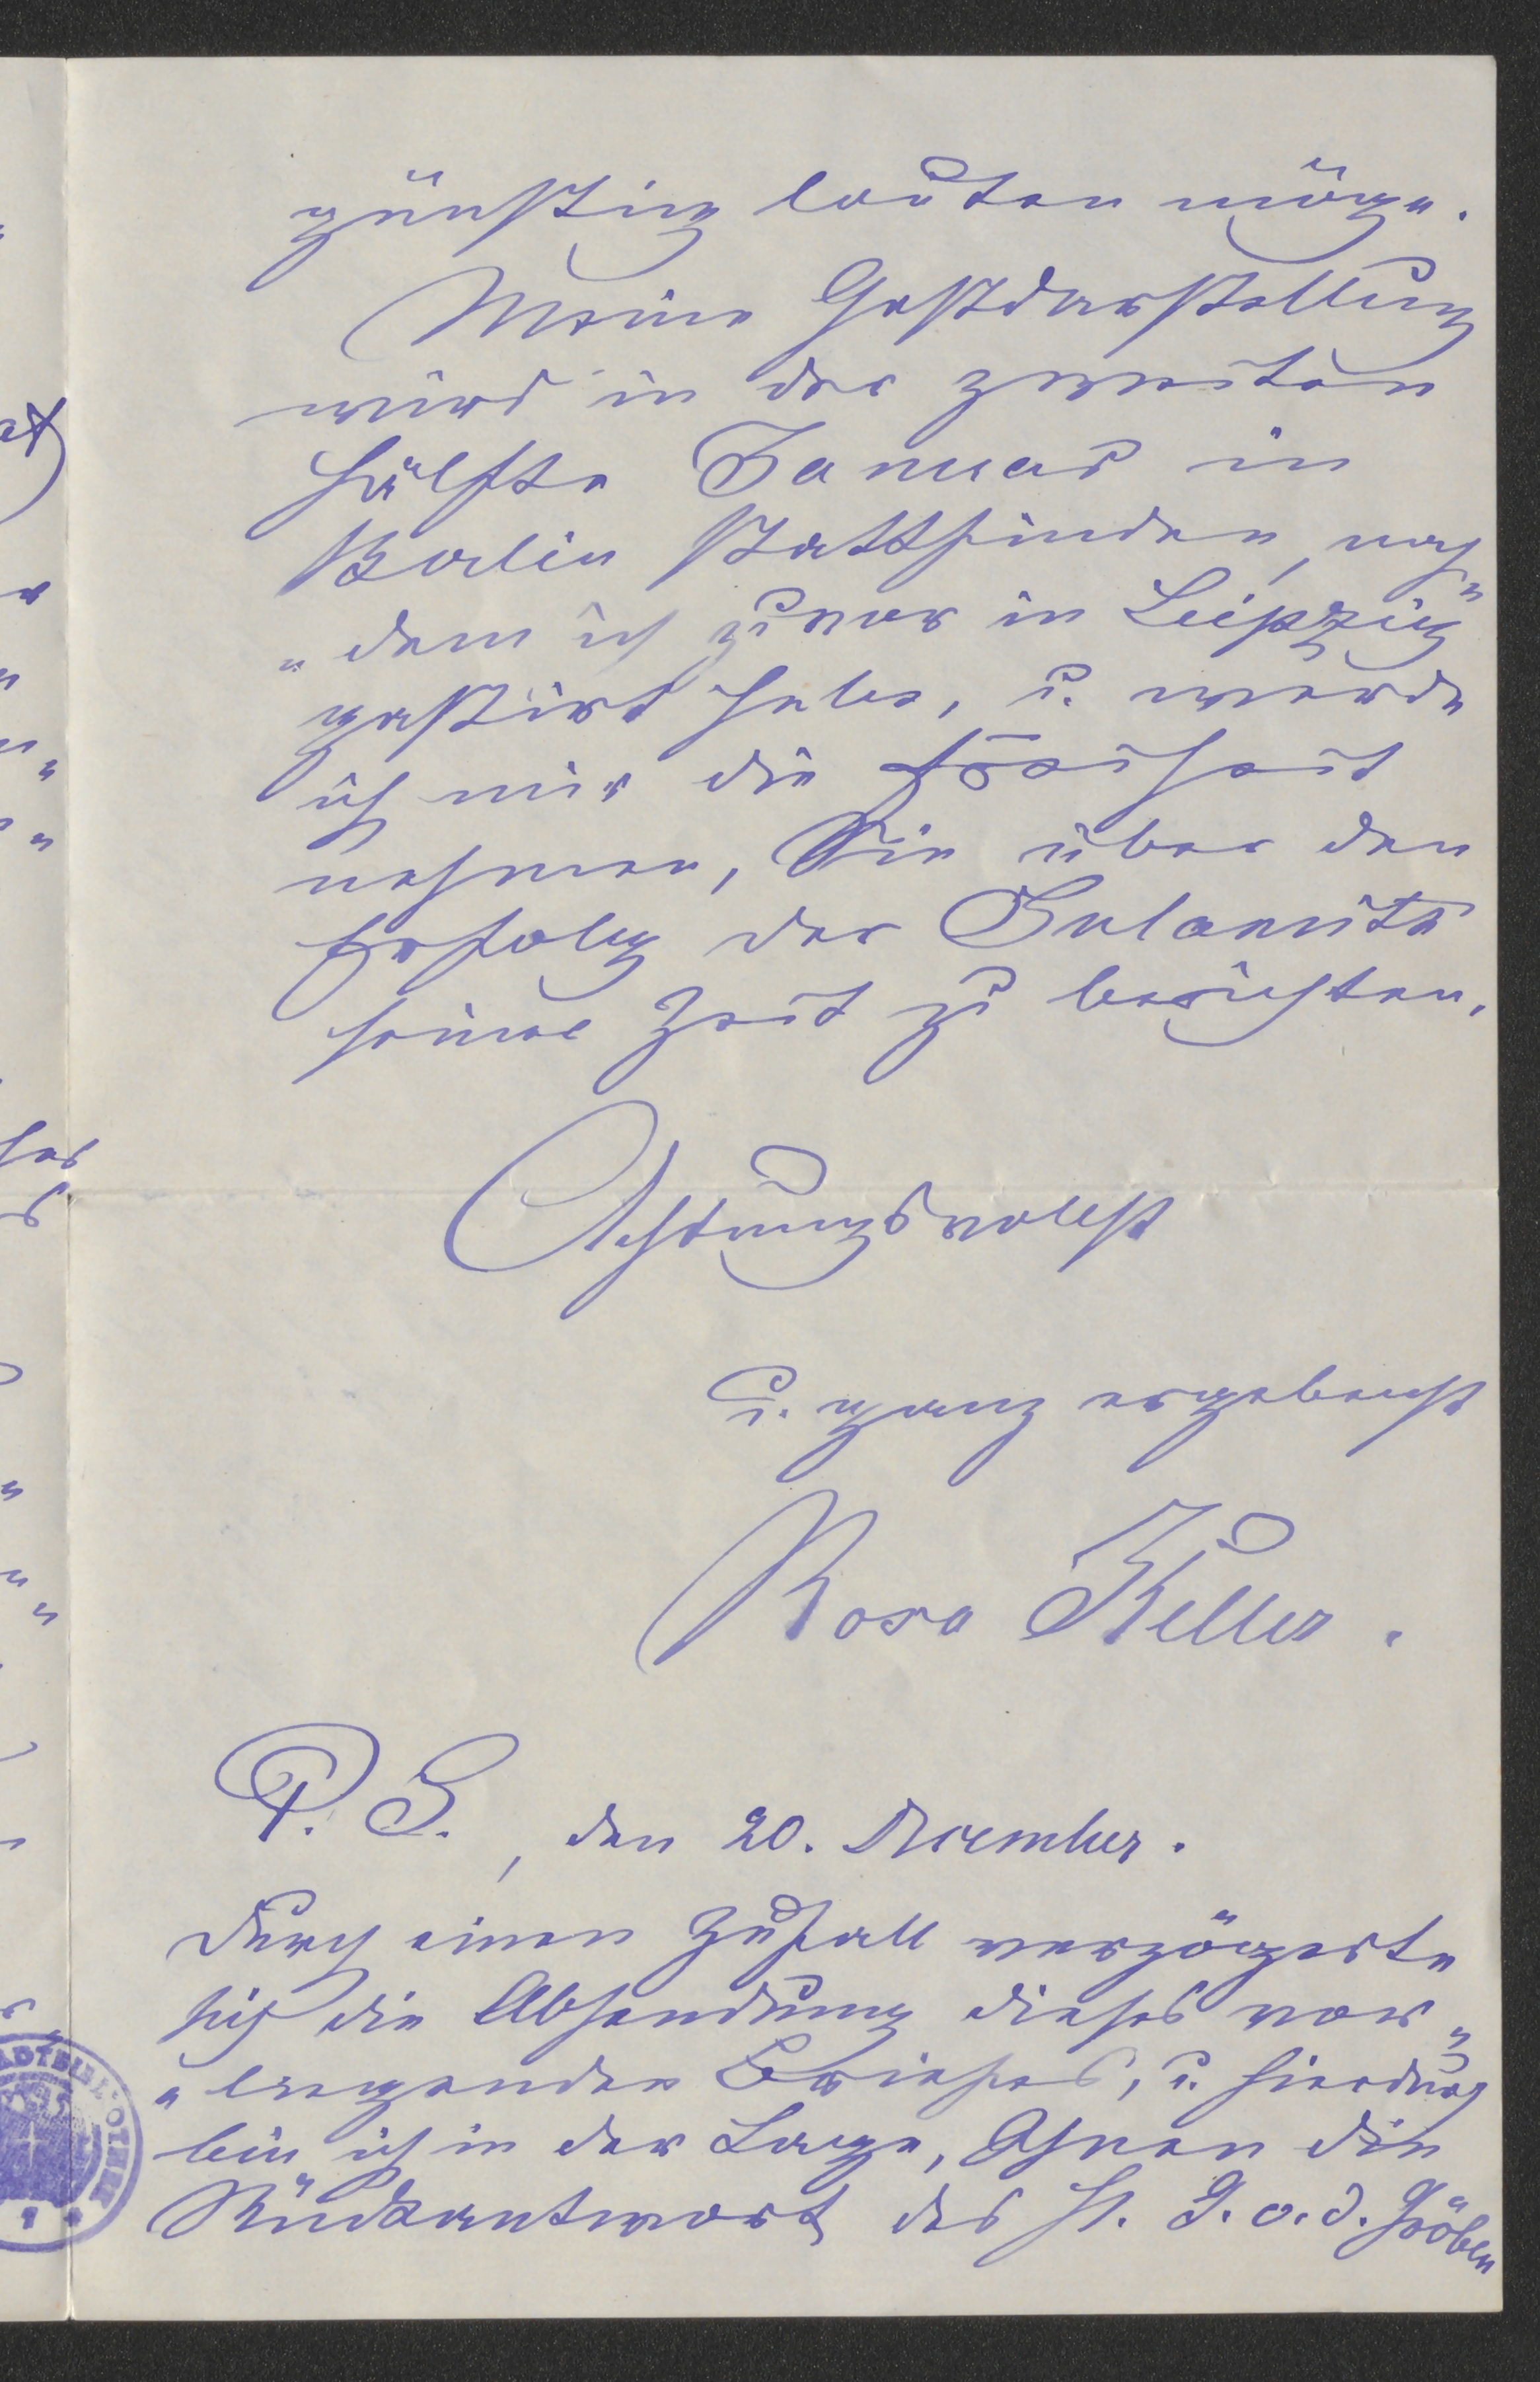 günstig lauten möge.
Meine Gastdarstellung
wird in der zweiten
Hälfte Januar in
Berlin stattfinden, nach„
„dem ich zuvor in Leipzig
gastirt habe, u. werde
ich mir die Freiheit
nehmen, Sie über den
Erfolg der Sulamith
seiner Zeit zu berichten.
Achtungsvollst
u. ganz ergebenst
Rosa Keller.
P. S., den 20. Dezember.
Durch einen Zufall verzögerte
sich die Absendung dieses vor„
„liegenden Briefes, u. hierdurch
bin ich in der Lage, Ihnen die
Rückantwort des H. G. v. d. Gröben